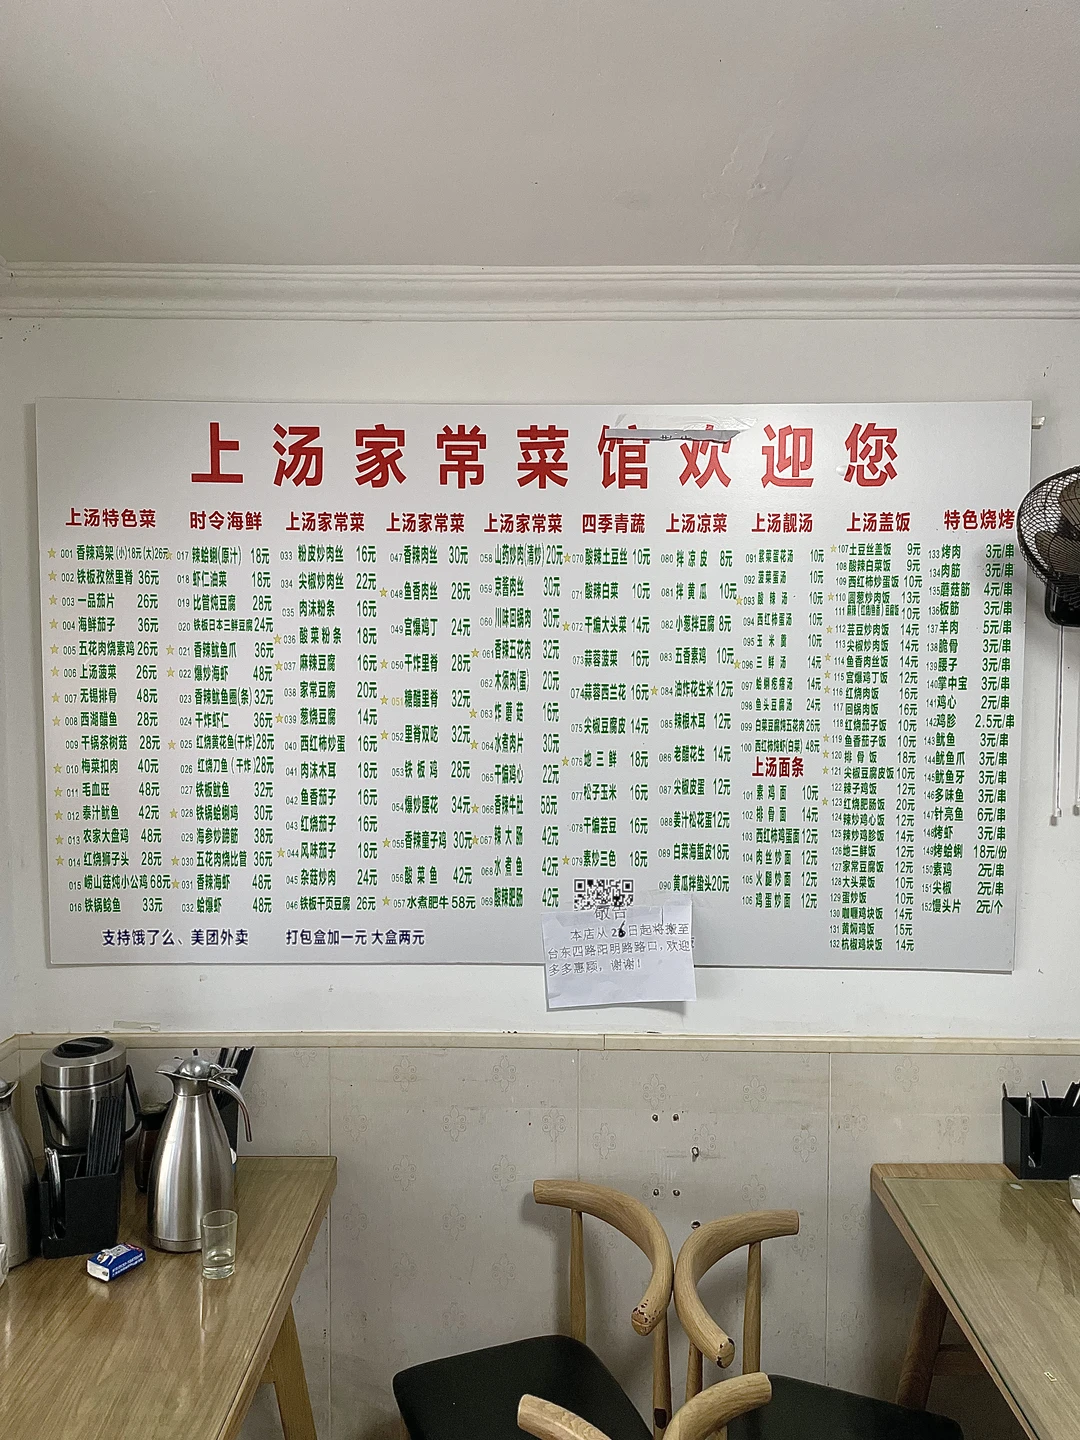 上汤家常菜馆欢迎您
上汤特色菜
001 香辣鸡架(小)18元(大)26元
002 铁板孜然里脊 36元
003 一品茄片 26元
004 海鲜茄子 36元
005 五花肉烧素鸡 26元
006 上汤菠菜 26元
007 无锡排骨 48元
008 西湖醋鱼 28元
009 干锅茶树菇 28元
010 梅菜扣肉 40元
011 毛血旺 48元
012 泰汁鱿鱼 42元
013 农家大盘鸡 48元
014 红烧狮子头 28元
015 崂山菇炖小公鸡 68元
016 铁锅鲶鱼 33元
时令海鲜
017 辣蛤蜊(原汁) 18元
018 虾仁油菜 18元
019 比管炖豆腐 28元
020 铁板日本三鲜豆腐 24元
021 香辣鱿鱼爪 36元
022 爆炒海虾 48元
023 香辣鱿鱼圈(条) 32元
024 干炸虾仁 36元
025 红烧黄花鱼(干炸) 28元
026 红烧刀鱼(干炸) 28元
027 铁板鱿鱼 32元
028 铁锅蛤蜊鸡 30元
029 海参炒蹄筋 38元
030 五花肉烧比管 36元
031 香辣海虾 48元
032 蛤爆虾 48元
上汤家常菜
033 粉皮炒肉丝 16元
034 尖椒炒肉丝 22元
035 肉沫粉条 16元
036 酸菜粉条 18元
037 麻辣豆腐 16元
038 家常豆腐 20元
039 葱烧豆腐 14元
040 西红柿炒蛋 16元
041 肉沫木耳 18元
042 鱼香茄子 16元
043 红烧茄子 16元
044 风味茄子 18元
045 杂菇炒肉 24元
046 铁板千页豆腐 26元
上汤家常菜
047 香辣肉丝 30元
048 鱼香肉丝 28元
049 宫爆鸡丁 24元
050 干炸里脊 28元
051 糖醋里脊 32元
052 里脊双吃 32元
053 铁板鸡 28元
054 爆炒腰花 34元
055 香辣童子鸡 30元
056 酸菜鱼 42元
057 水煮肥牛 58元
上汤家常菜
058 山药炒肉(清炒) 20元
059 京酱肉丝 30元
060 川味回锅肉 30元
061 香辣五花肉 32元
062 木须肉(蛋) 20元
063 炸蘑菇 16元
064 水煮肉片 30元
065 干煸鸡心 22元
066 香辣牛肚 58元
067 辣大肠 42元
068 水煮鱼 42元
069 酸辣肥肠 42元
四季青蔬
070 酸辣土豆丝 10元
071 酸辣白菜 10元
072 干煸大头菜 14元
073 蒜蓉菠菜 16元
074 蒜蓉西兰花 16元
075 尖椒豆腐皮 14元
076 地三鲜 18元
077 松子玉米 16元
078 干煸芸豆 16元
079 素炒三色 18元
上汤凉菜
080 拌凉皮 8元
081 拌黄瓜 10元
082 小葱拌豆腐 8元
083 五香素鸡 10元
084 油炸花生米 12元
085 辣根木耳 12元
086 老醋花生 14元
087 尖椒皮蛋 12元
088 姜汁松花蛋 12元
089 白菜海蜇皮 18元
090 黄瓜拌蛰头 20元
上汤靓汤
091 紫菜蛋花汤 10元
092 菠菜蛋汤 10元
093 酸辣汤 10元
094 西红柿蛋汤 10元
095 玉米羹 10元
096 三鲜汤 14元
097 蛤蜊疙瘩汤 14元
098 鱼头豆腐汤 24元
099 白菜豆腐炖五花肉 26元
100 西红柿炖虾(白菜) 48元
上汤面条
101 素鸡面 10元
102 排骨面 14元
103 西红柿鸡蛋面 12元
104 肉丝炒面 12元
105 火腿炒面 12元
106 鸡蛋炒面 12元
上汤盖饭
107 土豆丝盖饭 9元
108 酸辣白菜饭 9元
109 西红柿炒蛋饭 10元
110 圆葱炒肉饭 13元
111 麻辣(红烧鱼香)豆腐饭 10元
112 芸豆炒肉饭 14元
113 尖椒炒肉饭 14元
114 鱼香肉丝饭 14元
115 宫爆鸡丁饭 12元
116 红烧肉饭 16元
117 回锅肉饭 16元
118 红烧茄子饭 10元
119 鱼香茄子饭 10元
120 排骨饭 18元
121 尖椒豆腐皮饭 10元
122 辣子鸡饭 12元
123 红烧肥肠饭 20元
124 辣炒鸡心饭 12元
125 辣炒鸡胗饭 14元
126 地三鲜饭 12元
127 家常豆腐饭 12元
128 大头菜饭 10元
129 蛋炒饭 10元
130 咖喱鸡块饭 14元
131 黄焖鸡饭 15元
132 杭椒鸡块饭 14元
特色烧烤
133 烤肉 3元/串
134 肉筋 3元/串
135 蘑菇筋 4元/串
136 板筋 3元/串
137 羊肉 5元/串
138 脆骨 3元/串
139 腰子 3元/串
140 掌中宝 3元/串
141 鸡心 2元/串
142 鸡胗 2.5元/串
143 鱿鱼 3元/串
144 鱿鱼爪 3元/串
145 鱿鱼牙 3元/串
146 多味鱼 3元/串
147 针亮鱼 6元/串
148 烤虾 3元/串
149 烤蛤蜊 18元/份
150 素鸡 2元/串
151 尖椒 2元/串
152 馒头片 2元/个
支持饿了么、美团外卖 打包盒加一元 大盒两元
敬告
本店从26日起将搬至
台东四路阳明路路口,欢迎
多多惠顾,谢谢!